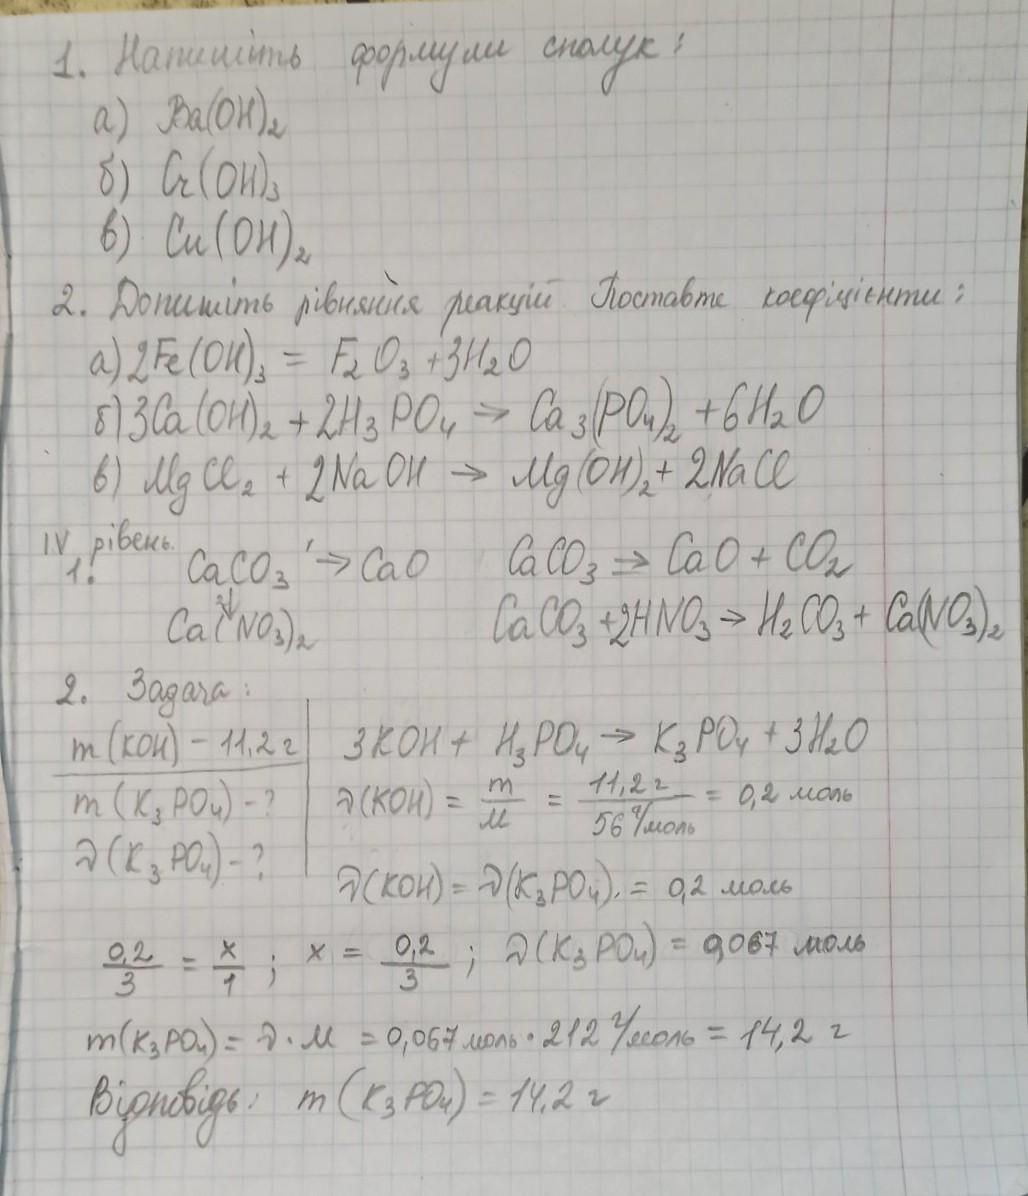 1. Напишіть формули сполук:
а) Ba(OH)₂
б) Cr(OH)₃
в) Cu(OH)₂
2. Допишіть рівняння реакцій Поставте коефіцієнти:
а) 2Fe(OH)₃ = F₂O₃ + 3H₂O
б) 3Ca(OH)₂ + 2H₃PO₄ → Ca₃(PO₄)₂ + 6H₂O
в) MgCl₂ + 2NaOH → Mg(OH)₂ + 2NaCl
IV рівень.
1. CaCO₃ → CaO CaCO₃ → CaO + CO₂
↓
Ca(NO₃)₂ CaCO₃ + 2HNO₃ → H₂CO₃ + Ca(NO₃)₂
2. Задача:
m(KOH) – 11,2 г 3KOH + H₃PO₄ → K₃PO₄ + 3H₂O
m(K₃PO₄) – ? ν(KOH) = m/M = 11,2 г/56 г/моль = 0,2 моль
ν(K₃PO₄) – ? ν(KOH) = ν(K₃PO₄). = 0,2 моль
0,2/3 = x/1 ; x = 0,2/3 ; ν(K₃PO₄) = 0,067 моль
m(K₃PO₄) = ν · M = 0,067 моль · 212 г/моль = 14,2 г
Відповідь: m(K₃PO₄) = 14,2 г